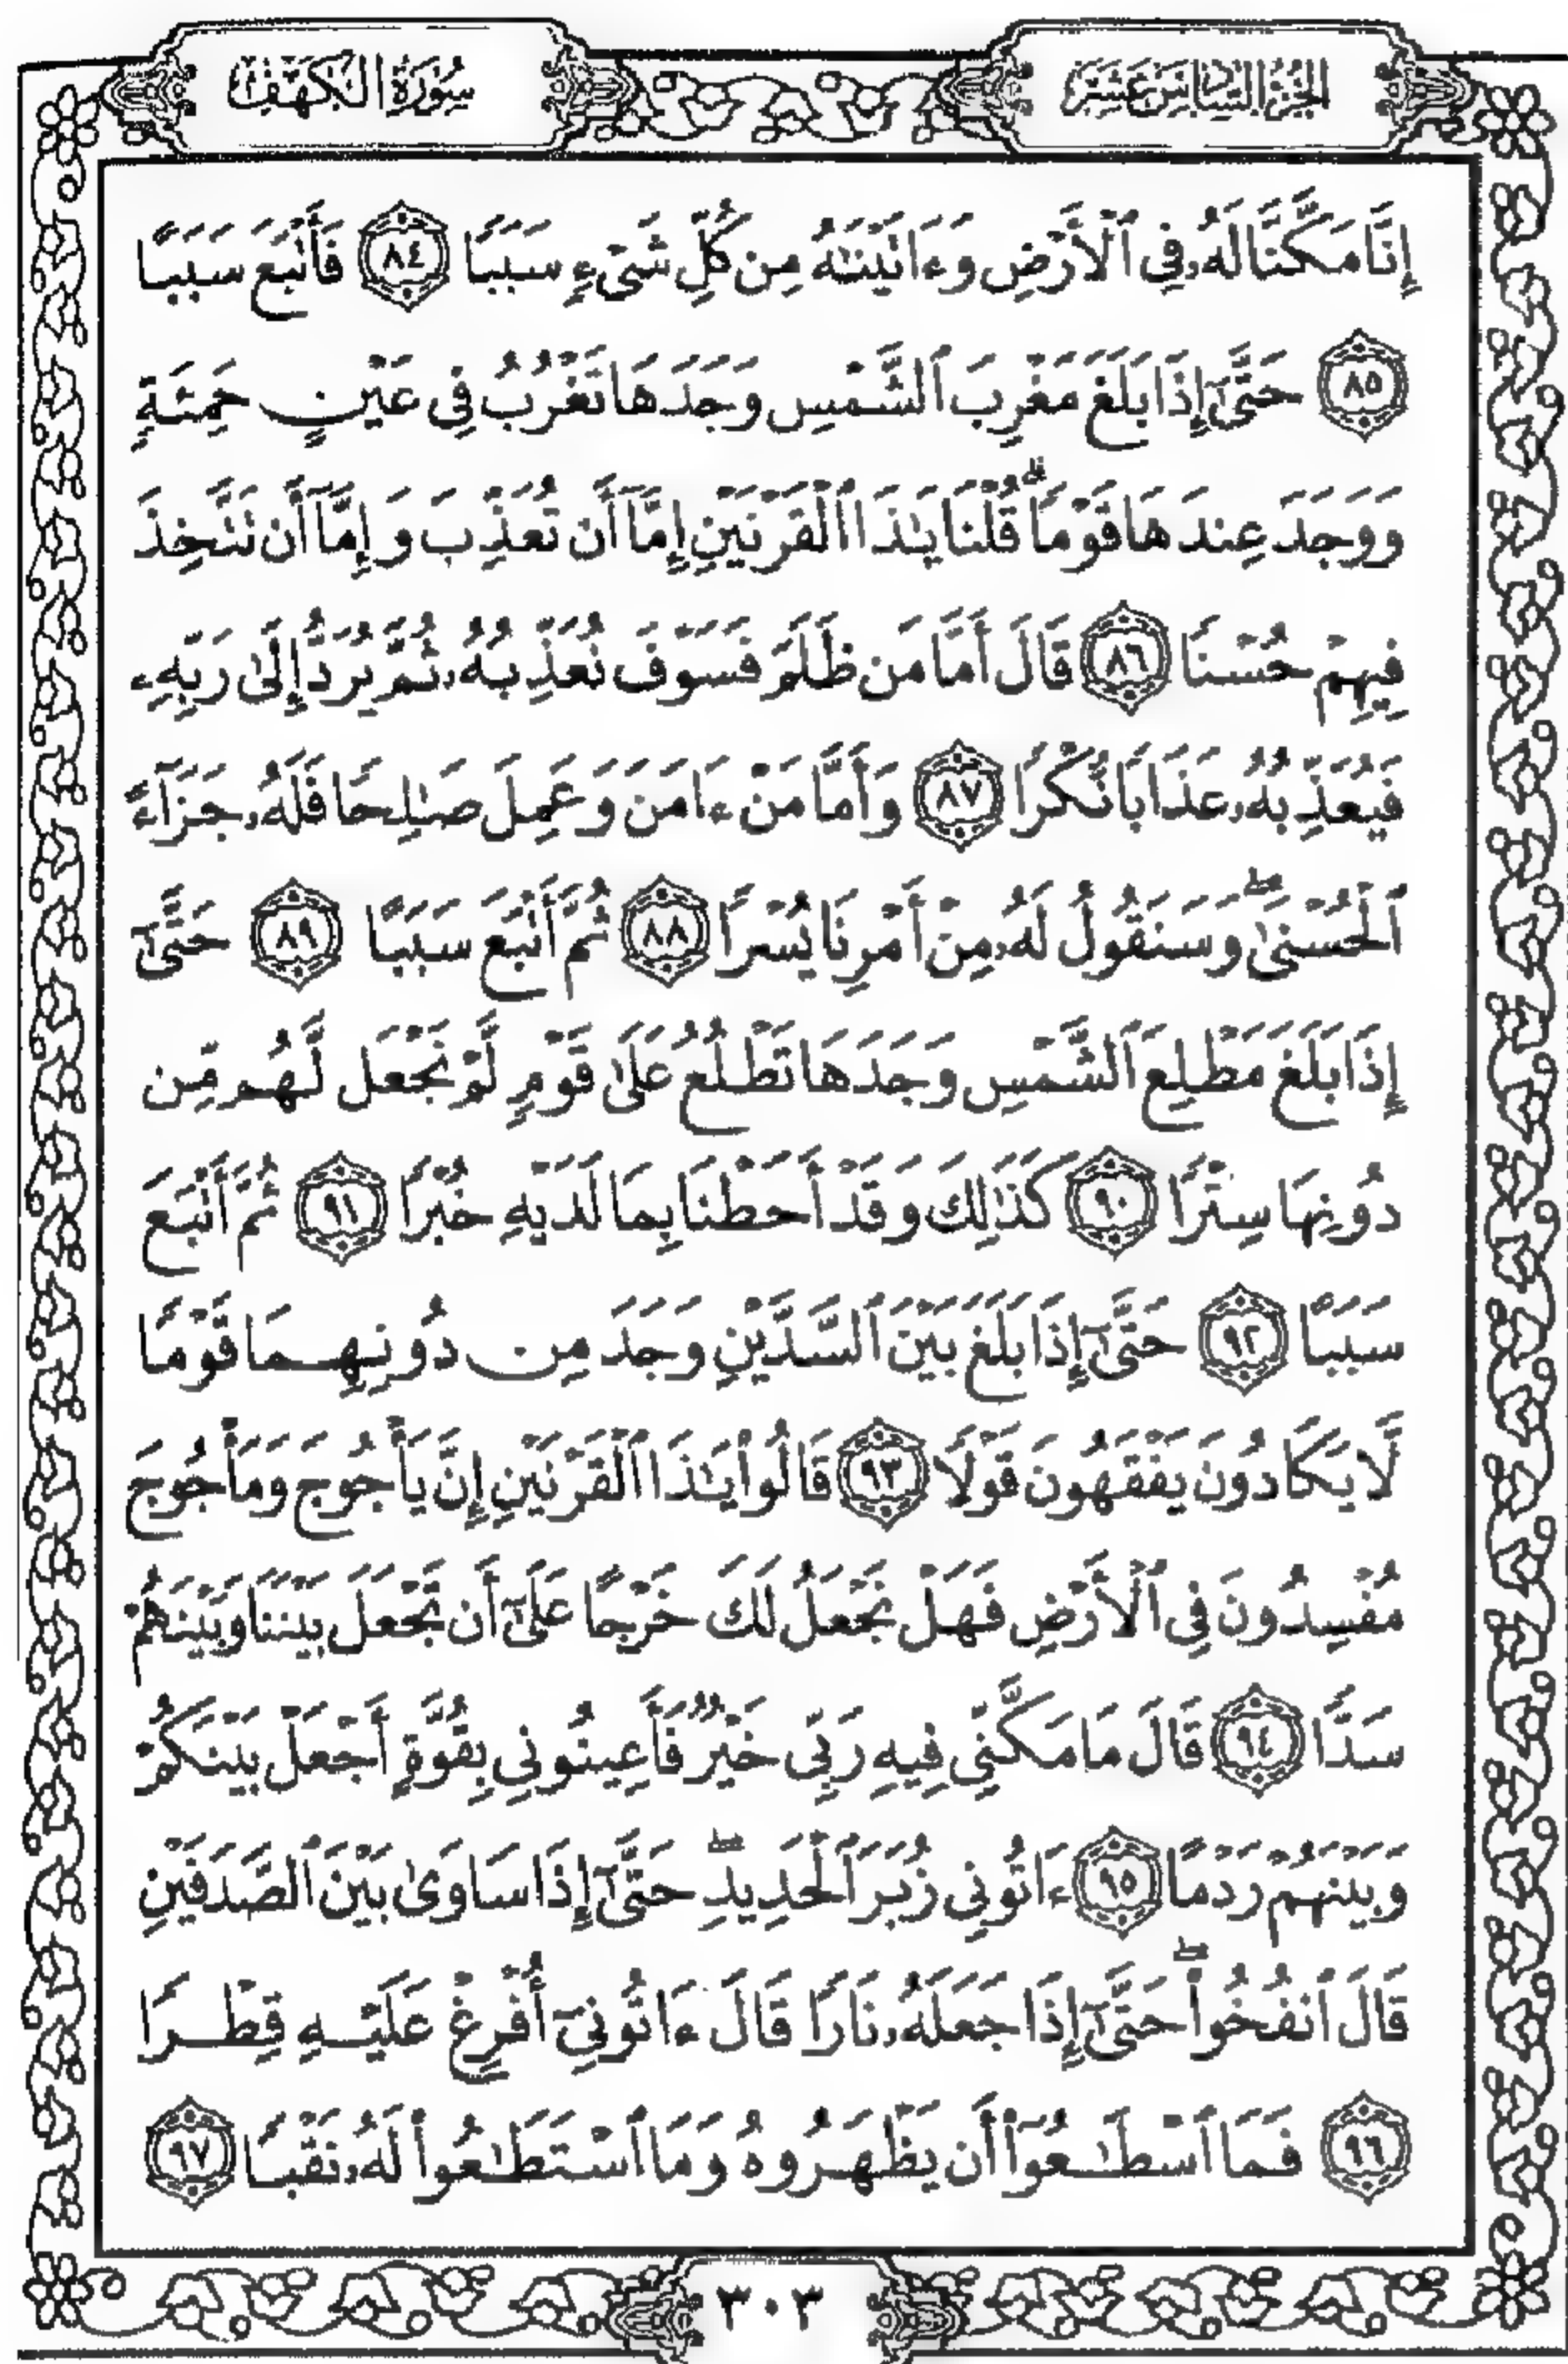 الجزء السادس عشر
سورة الكهف
إِنَّا مَكَّنَّا لَهُۥ فِي ٱلْأَرْضِ وَءَاتَيْنَٰهُ مِن كُلِّ شَىْءٍ سَبَبًا ٨٤ فَأَتْبَعَ سَبَبًا
٨٥ حَتَّىٰٓ إِذَا بَلَغَ مَغْرِبَ ٱلشَّمْسِ وَجَدَهَا تَغْرُبُ فِى عَيْنٍ حَمِئَةٍ
وَوَجَدَ عِندَهَا قَوْمًا ۗ قُلْنَا يَٰذَا ٱلْقَرْنَيْنِ إِمَّآ أَن تُعَذِّبَ وَإِمَّآ أَن تَتَّخِذَ
فِيهِمْ حُسْنًا ٨٦ قَالَ أَمَّا مَن ظَلَمَ فَسَوْفَ نُعَذِّبُهُۥ ثُمَّ يُرَدُّ إِلَىٰ رَبِّهِۦ
فَيُعَذِّبُهُۥ عَذَابًا نُّكْرًا ٨٧ وَأَمَّا مَنْ ءَامَنَ وَعَمِلَ صَٰلِحًا فَلَهُۥ جَزَآءً
ٱلْحُسْنَىٰ ۖ وَسَنَقُولُ لَهُۥ مِنْ أَمْرِنَا يُسْرًا ٨٨ ثُمَّ أَتْبَعَ سَبَبًا ٨٩ حَتَّىٰٓ
إِذَا بَلَغَ مَطْلِعَ ٱلشَّمْسِ وَجَدَهَا تَطْلُعُ عَلَىٰ قَوْمٍ لَّمْ نَجْعَل لَّهُم مِّن
دُونِهَا سِتْرًا ٩٠ كَذَٰلِكَ وَقَدْ أَحَطْنَا بِمَا لَدَيْهِ خُبْرًا ٩١ ثُمَّ أَتْبَعَ
سَبَبًا ٩٢ حَتَّىٰٓ إِذَا بَلَغَ بَيْنَ ٱلسَّدَّيْنِ وَجَدَ مِن دُونِهِمَا قَوْمًا
لَّا يَكَادُونَ يَفْقَهُونَ قَوْلًا ٩٣ قَالُوا۟ يَٰذَا ٱلْقَرْنَيْنِ إِنَّ يَأْجُوجَ وَمَأْجُوجَ
مُفْسِدُونَ فِى ٱلْأَرْضِ فَهَلْ نَجْعَلُ لَكَ خَرْجًا عَلَىٰٓ أَن تَجْعَلَ بَيْنَنَا وَبَيْنَهُمْ
سَدًّا ٩٤ قَالَ مَا مَكَّنِّى فِيهِ رَبِّى خَيْرٌ فَأَعِينُونِى بِقُوَّةٍ أَجْعَلْ بَيْنَكُمْ
وَبَيْنَهُمْ رَدْمًا ٩٥ ءَاتُونِى زُبَرَ ٱلْحَدِيدِ ۖ حَتَّىٰٓ إِذَا سَاوَىٰ بَيْنَ ٱلصَّدَفَيْنِ
قَالَ ٱنفُخُوا۟ ۖ حَتَّىٰٓ إِذَا جَعَلَهُۥ نَارًا قَالَ ءَاتُونِىٓ أُفْرِغْ عَلَيْهِ قِطْرًا
٩٦ فَمَا ٱسْطَٰعُوٓا۟ أَن يَظْهَرُوهُ وَمَا ٱسْتَطَٰعُوا۟ لَهُۥ نَقْبًا ٩٧
٣٠٣